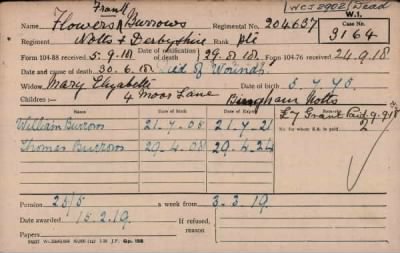 WCJ 2902 Dead
W.1.
Frank
Name Flowers Burrows Regimental No. 204637
Case No.
3164
Regiment Notts & Derbyshire Rank Pte
Form 104-88 received 5.9.18 Date of notification of death 29.8.18 Form 104-76 received 24.9.18
Date and cause of death 30.6.18 Died of Wounds
Widow Mary Elizabeth 5.7.75
Children:— 4 Moor Lane Bingham Notts
Name Date of Birth Date of Expiry £7 Grant Paid 9.9.18
William Burrows 21.7.05 21.7.21 No. for whom S.A. is paid 2
Thomas Burrows 29.4.08 29.4.24
Pension 25/5 week from 3.3.19.
Date awarded 15.2.19. If refused, reason